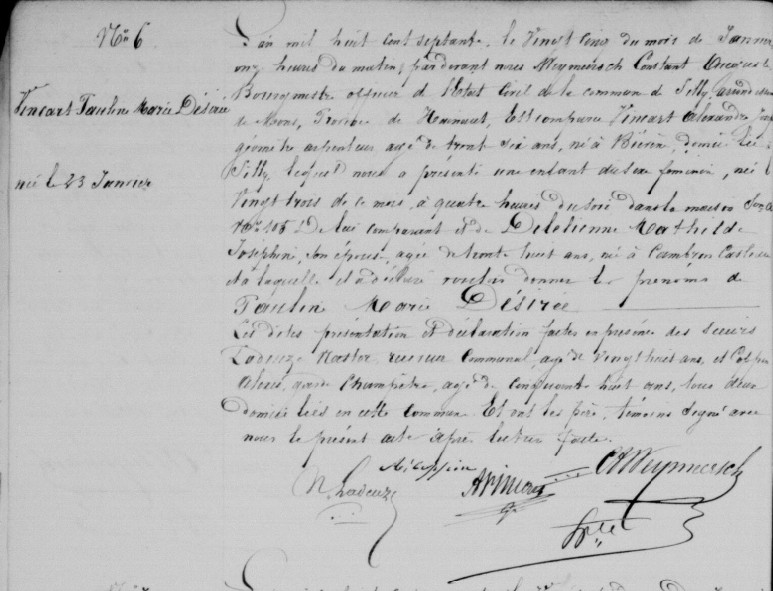 N° 6
L'an mil huit cent septante, le Vingt cinq du mois de Janvier
onze heures du matin, pardevant nous Meymersch Constant
Bourgmestre officier de l'Etat Civil de la commune de Silly, arrondissem
de Mons, Province de Hainaut, Est comparu Vincart Alexandre
Vincart Pauline Marie Désirée
géomètre arpenteur agé de trente six ans, né à Bierin, domicilié
Silly, lequel nous a présenté une enfant du sexe feminin, née
née le 23 Janvier
Vingt trois de ce mois, à quatre heures du soir dans la maison
N° 106 De lui comparant et de Delétienne Mathilde
Joséphine, son épouse, agée de trente huit ans, née à Cambron Casteau
et à laquelle il a déclaré vouloir donner les prénoms de
Pauline Marie Désirée
Les dites présentation et déclaration faites en présence des sieurs
Ladeuze Nestor, receveur Communal, agé de Vingt huit ans, et
garde Champêtre, agé de cinquante huit ans, tous deux
domiciliés en cette commune Et ont les père, témoins signé avec
nous le présent acte après lecture faite.
N. Ladeuze